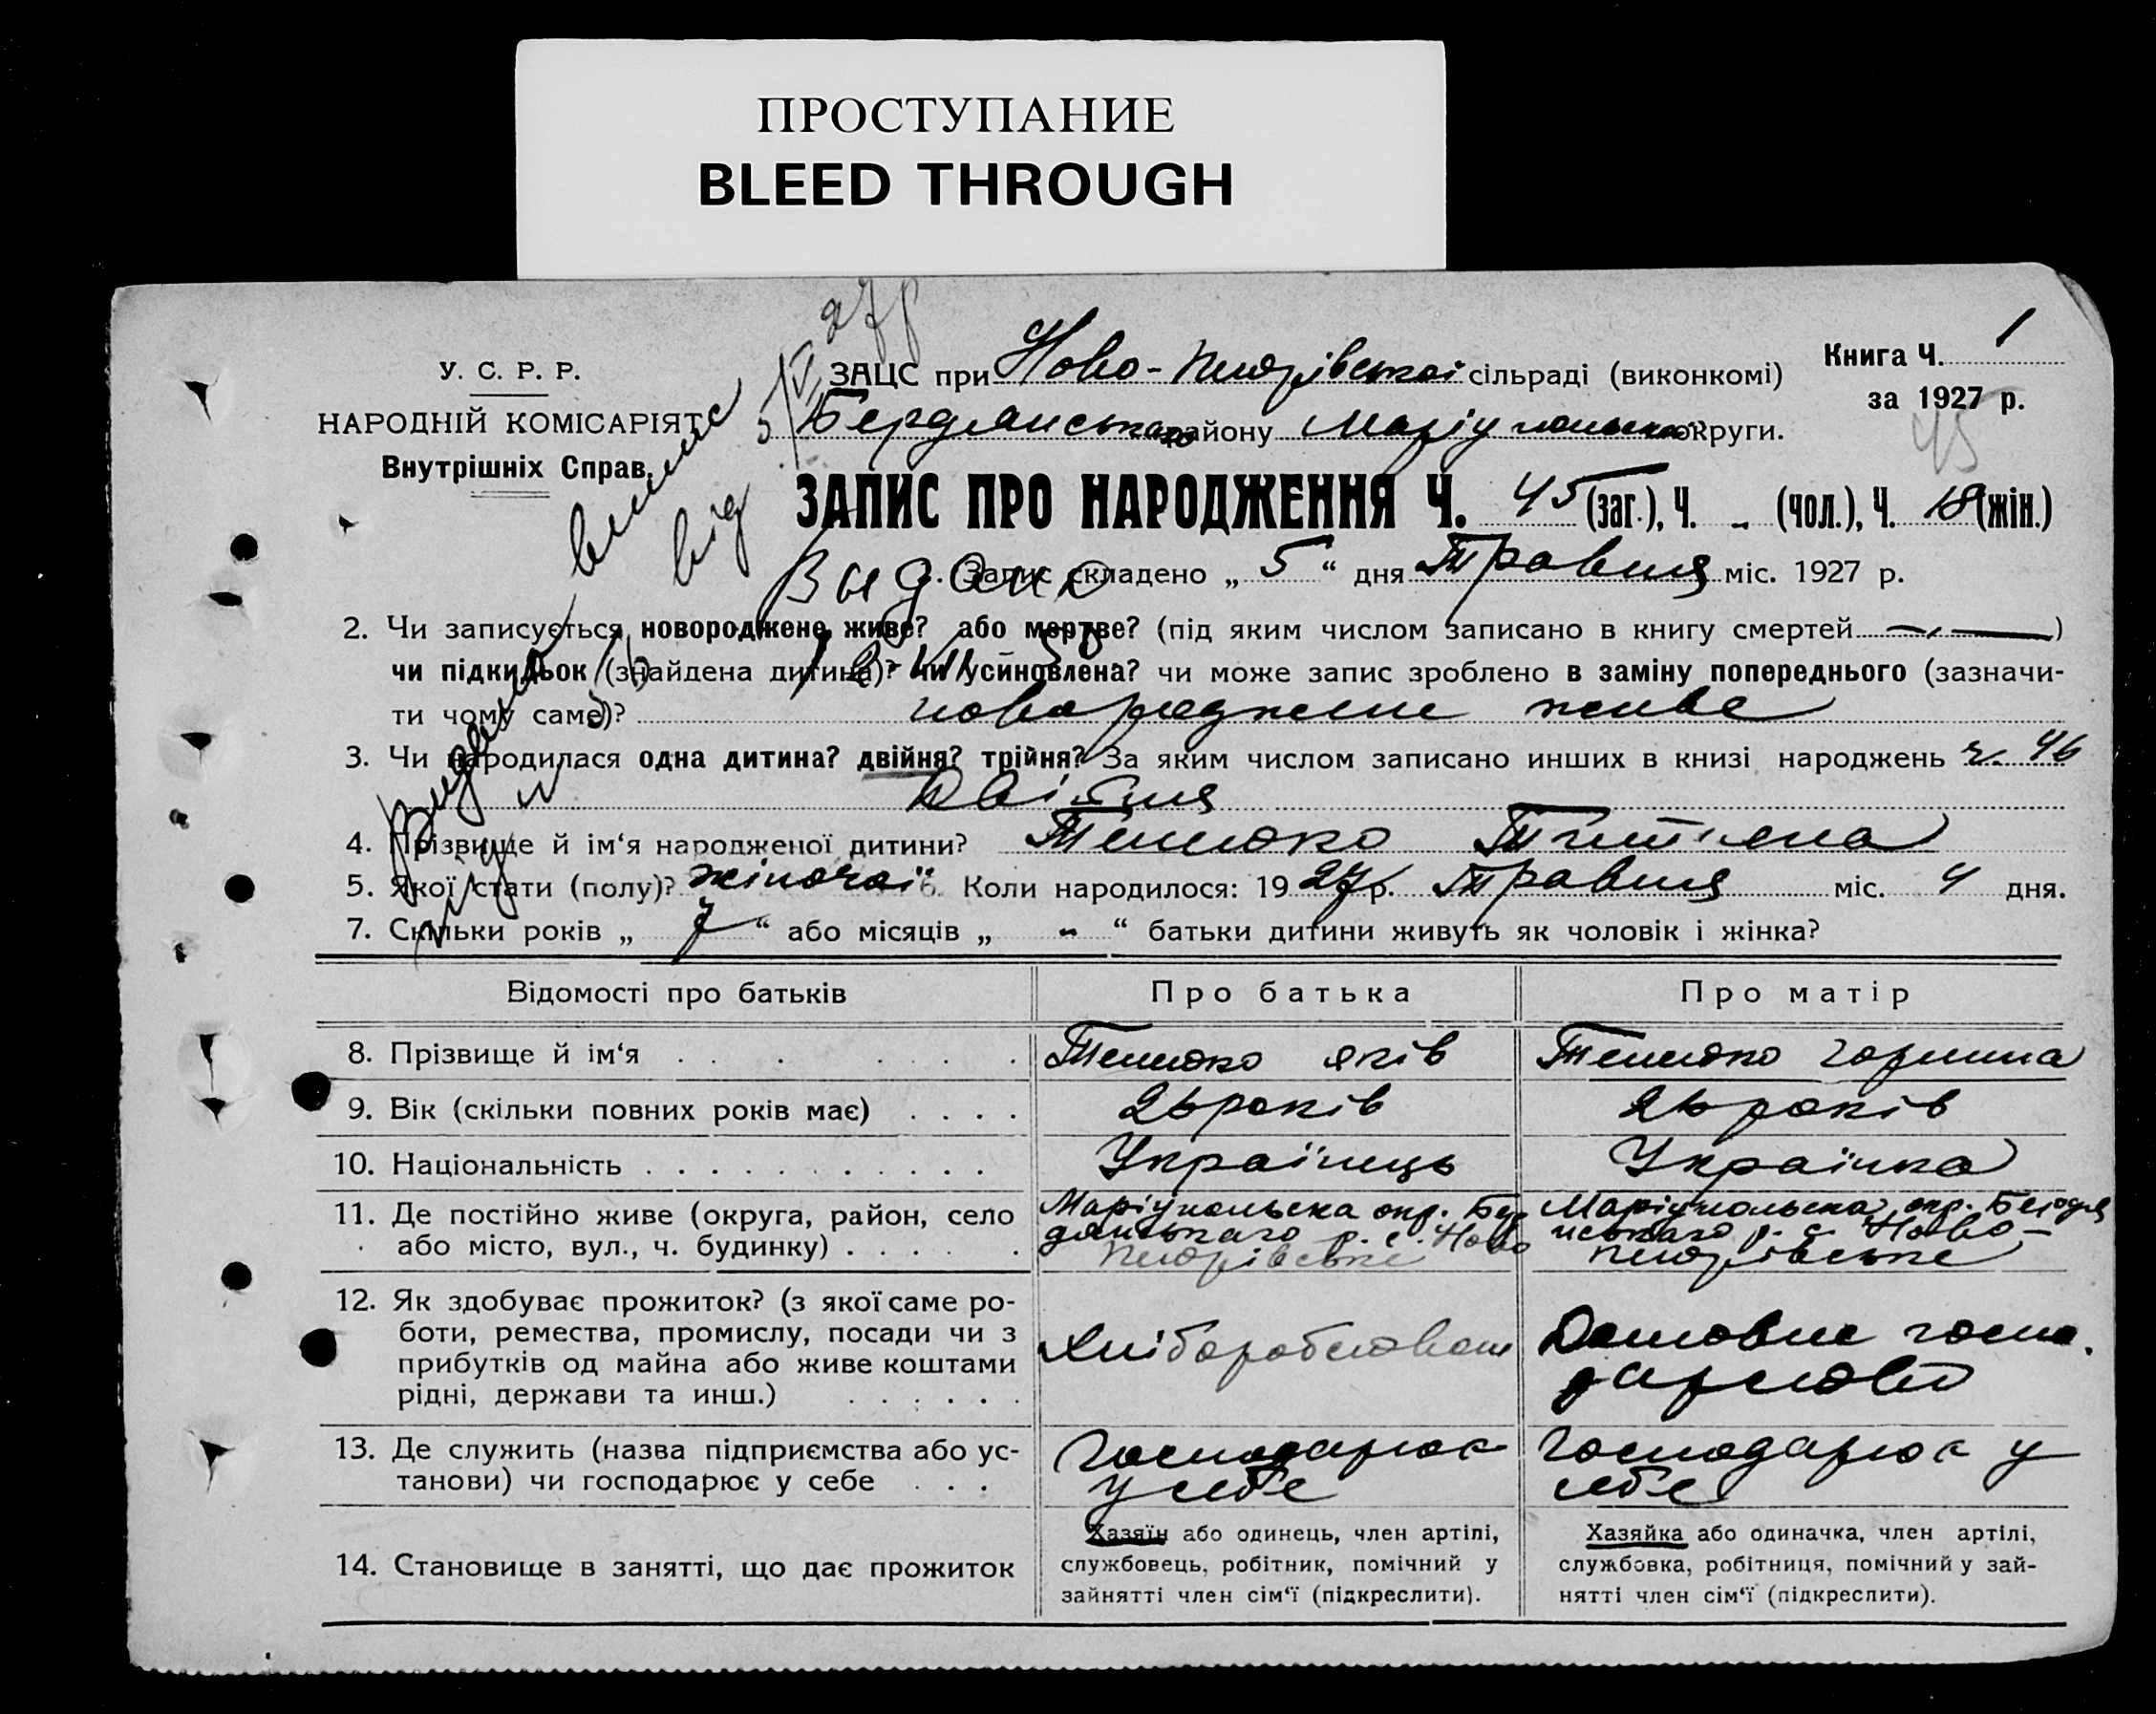 ПРОСТУПАНИЕ
BLEED THROUGH
27р
У. С. Р. Р.
НАРОДНІЙ КОМІСАРІЯТ
Внутрішніх Справ.
ЗАЦС при Ново-Петрівській сільраді (виконкомі)
Бердянського району Маріупольської округи.
Книга Ч. 1
за 1927 р.
45
ЗАПИС ПРО НАРОДЖЕННЯ Ч. 45 (заг.), Ч. - (чол.), Ч. 18 (жін.)
Видано
від 5/V
Выдано
1. Запис складено „ 5 “ дня Травня міс. 1927 р.
2. Чи записується новороджене живе? або мертве? (під яким числом записано в книгу смертей — — )
чи підкидьок (знайдена дитина)? чи усиновлена? чи може запис зроблено в заміну попереднього (зазначи-
ти чому саме)? новороджене живе
3. Чи народилася одна дитина? двійня? трійня? За яким числом записано инших в книзі народжень ч. 46
Двійня
4. Прізвище й ім‘я народженої дитини? Тетяна
5. Якої стати (полу)? жіночої 6. Коли народилося: 1927 р. Травня міс. 4 дня.
7. Скільки років „ 7 “ або місяців „ - “ батьки дитини живуть як чоловік і жінка?
Відомості про батьків Про батька Про матір
8. Прізвище й ім‘я Яків Горпина
9. Вік (скільки повних років має) 26 років 26 років
10. Національність Українець Українка
11. Де постійно живе (округа, район, село
або місто, вул., ч. будинку)
Маріупольська окр. Бер
дянського р. с. Ново
Петрівське
Маріупольська окр. Бердя
нського р. с. Ново-
Петрівське
12. Як здобуває прожиток? (з якої саме ро-
боти, ремества, промислу, посади чи з
прибутків од майна або живе коштами
рідні, держави та инш.)
Хліборобством
Домовне госпо
дарство
13. Де служить (назва підприємства або ус-
танови) чи господарює у себе
Господарює
у себе
Господарює у
себе
14. Становище в занятті, що дає прожиток
Хазяїн або одинець, член артілі,
службовець, робітник, помічний у
зайнятті член сім‘ї (підкреслити).
Хазяйка або одиначка, член артілі,
службовка, робітниця, помічний у зай-
нятті член сім‘ї (підкреслити).